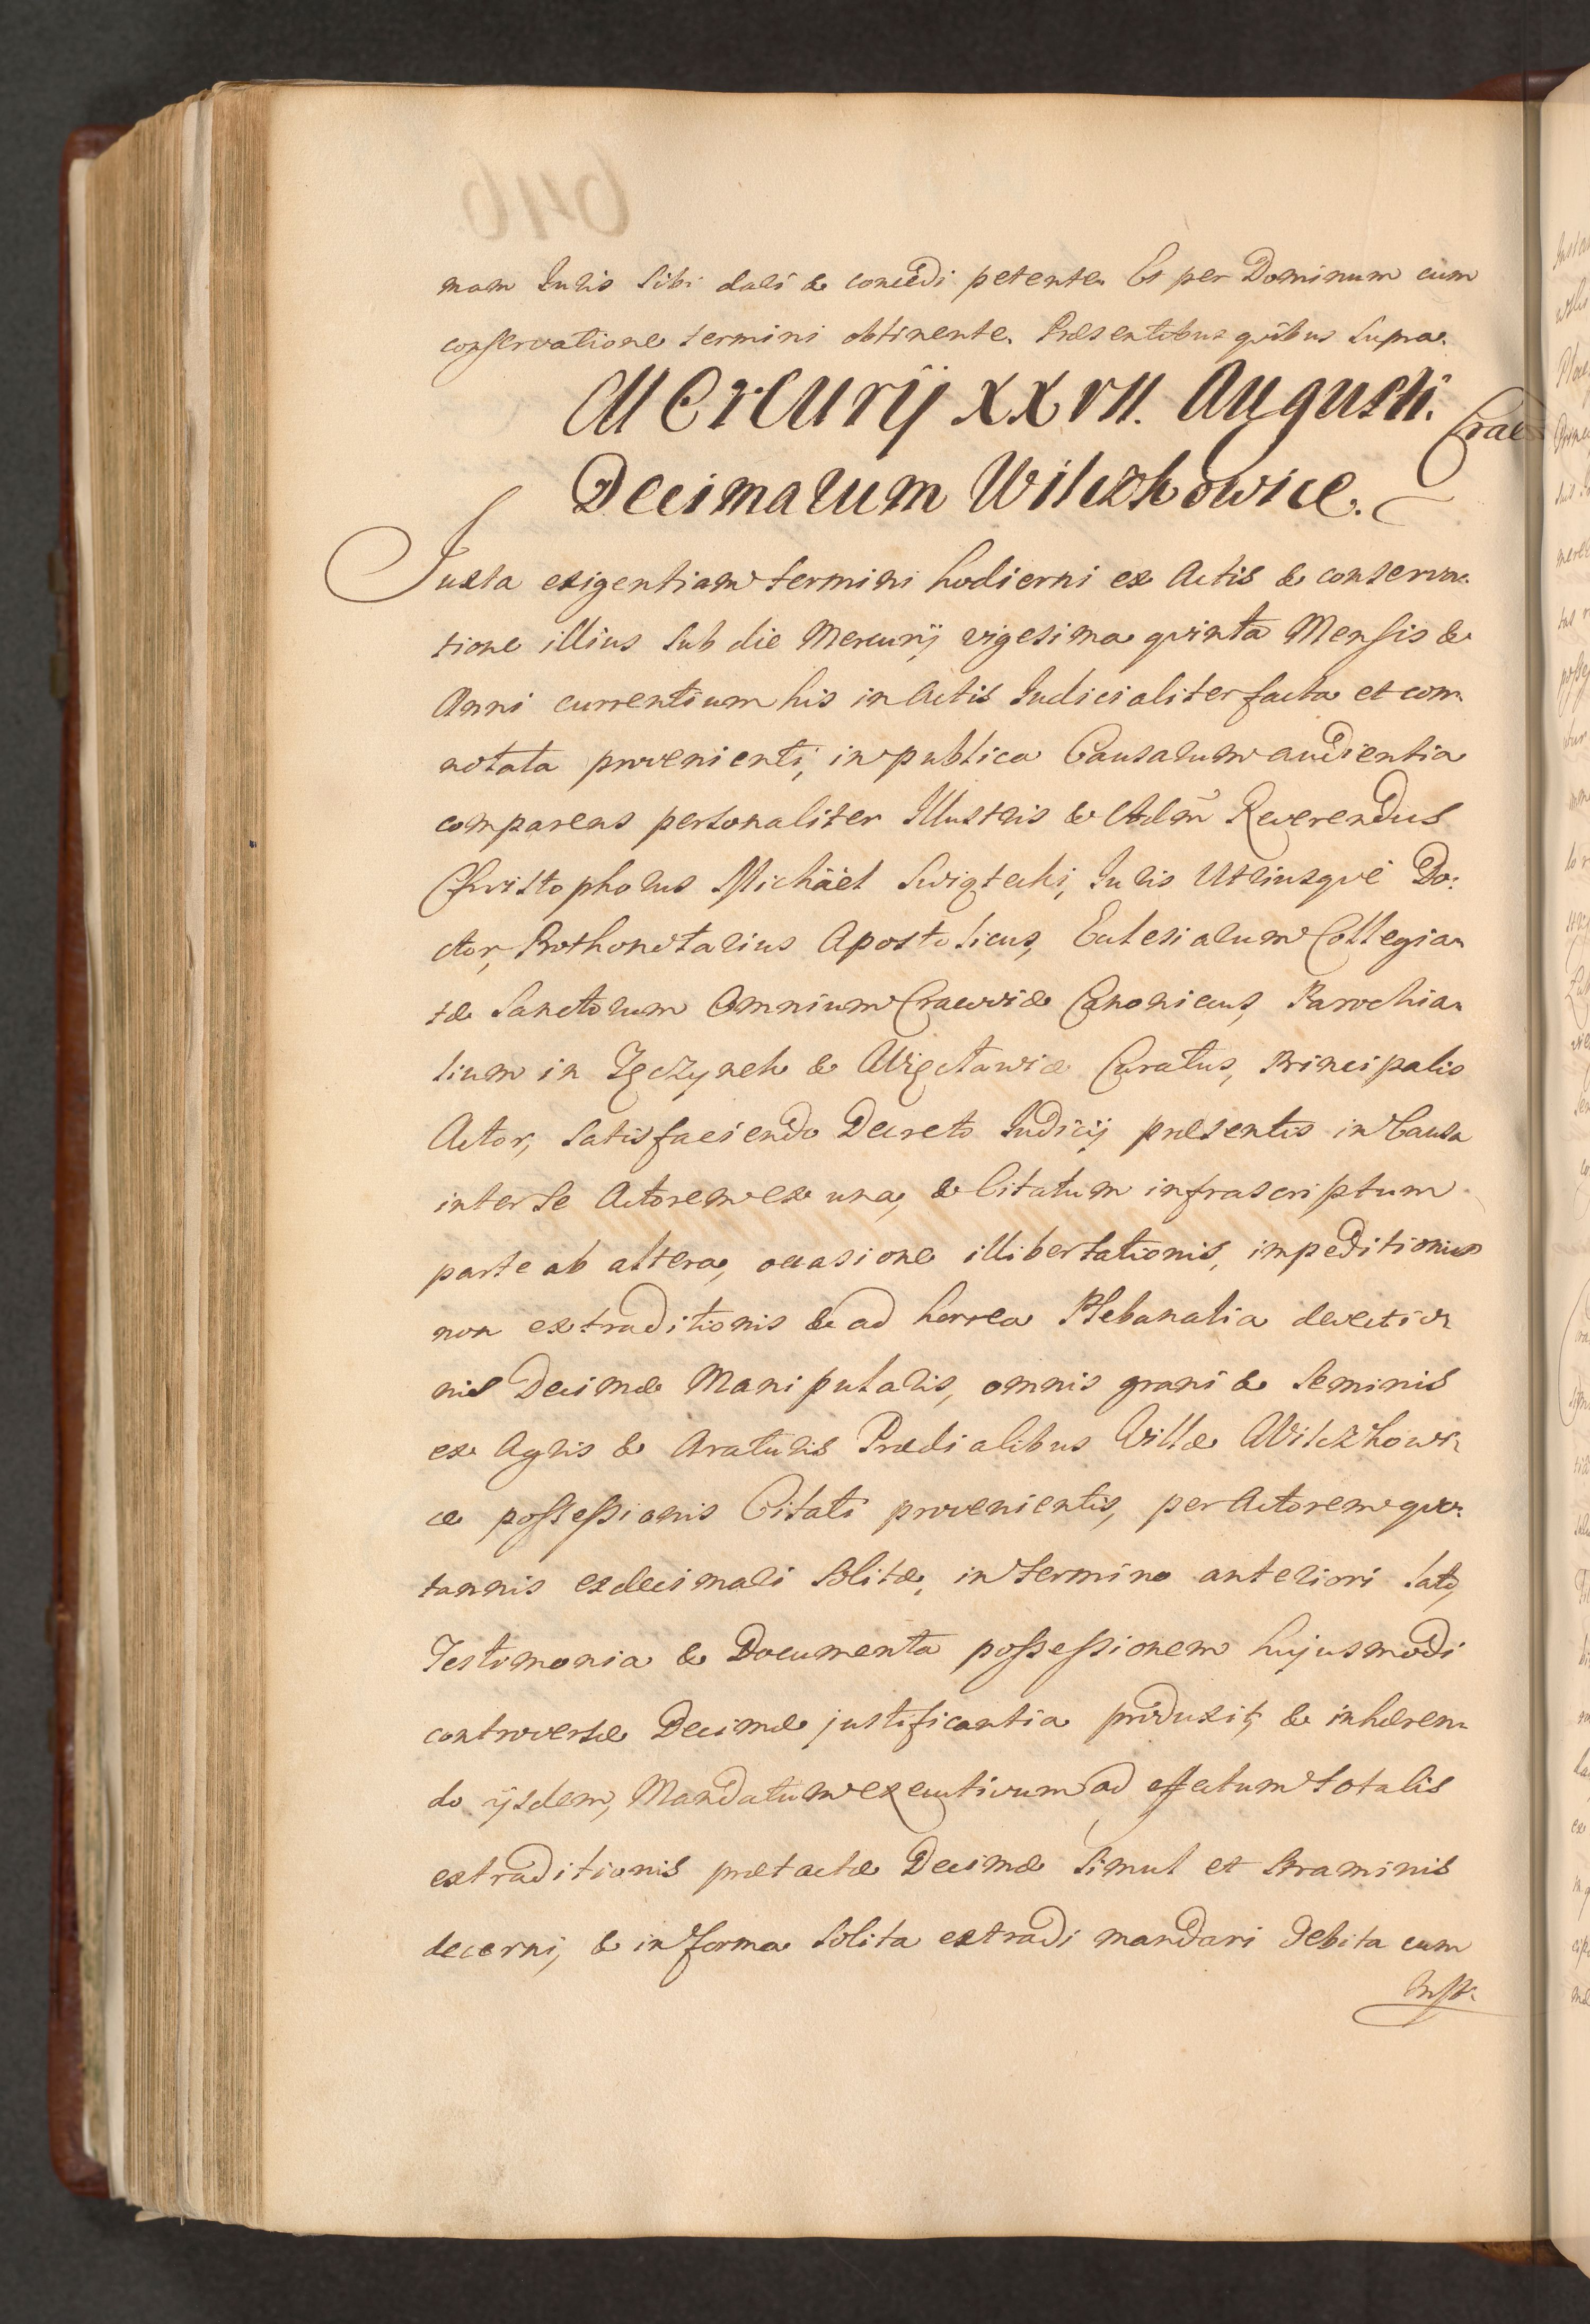 mam Juris sibi dari & concedi petente. Et per Dominum cum
conservatione termini obtinente. Præsentibus quibus supra.
Mercurij XXVII. Augusti.
Crac
Decimarum Wilczkowice.
Juxta exigentiam termini hodierni ex Actis & conserva-
tione illius sub die Mercurij vigesima quinta Mensis &
Anni currentium his in Actis Judicialiter facta et con-
notata provenienti, in publica Causarum audientia
comparens personaliter Illustris & Adm̃ Reverendus
Christophorus Michäel Swiątecki, Juris Utriusque Do-
ctor, Prothonotarius Apostolicus, Ecclesiarum Collegia-
tæ Sanctorum Omnium Cracoviæ Canonicus, Parochia-
lium in Tęczynek & Więcławice Curatus, Principalis
Actor, satisfaciendo Decreto Judicij præsentis in Causa
inter se Actorem ex una, & Citatum infrascriptum
parte ab altera, occasione illibertationis, impeditionis
non extraditionis & ad horrea Plebanalia devectio-
nis Decimæ Manipularis, omnis grani & seminis
ex Agris & Araturis Prædialibus Villæ Wilczkowi-
ce possessionis Citati provenientis, per Actorem quo-
tannis exdecimari solitæ, in termino anteriori lato,
Testimonia & Documenta possessionem hujusmodi
controversæ Decimæ justificantia produxit, & inhæren-
do ijsdem, Mandatum executivum ad effectum totalis
extraditionis prætactæ Decimæ simul et straminis
decerni, & in forma solita extradi mandari debita cum